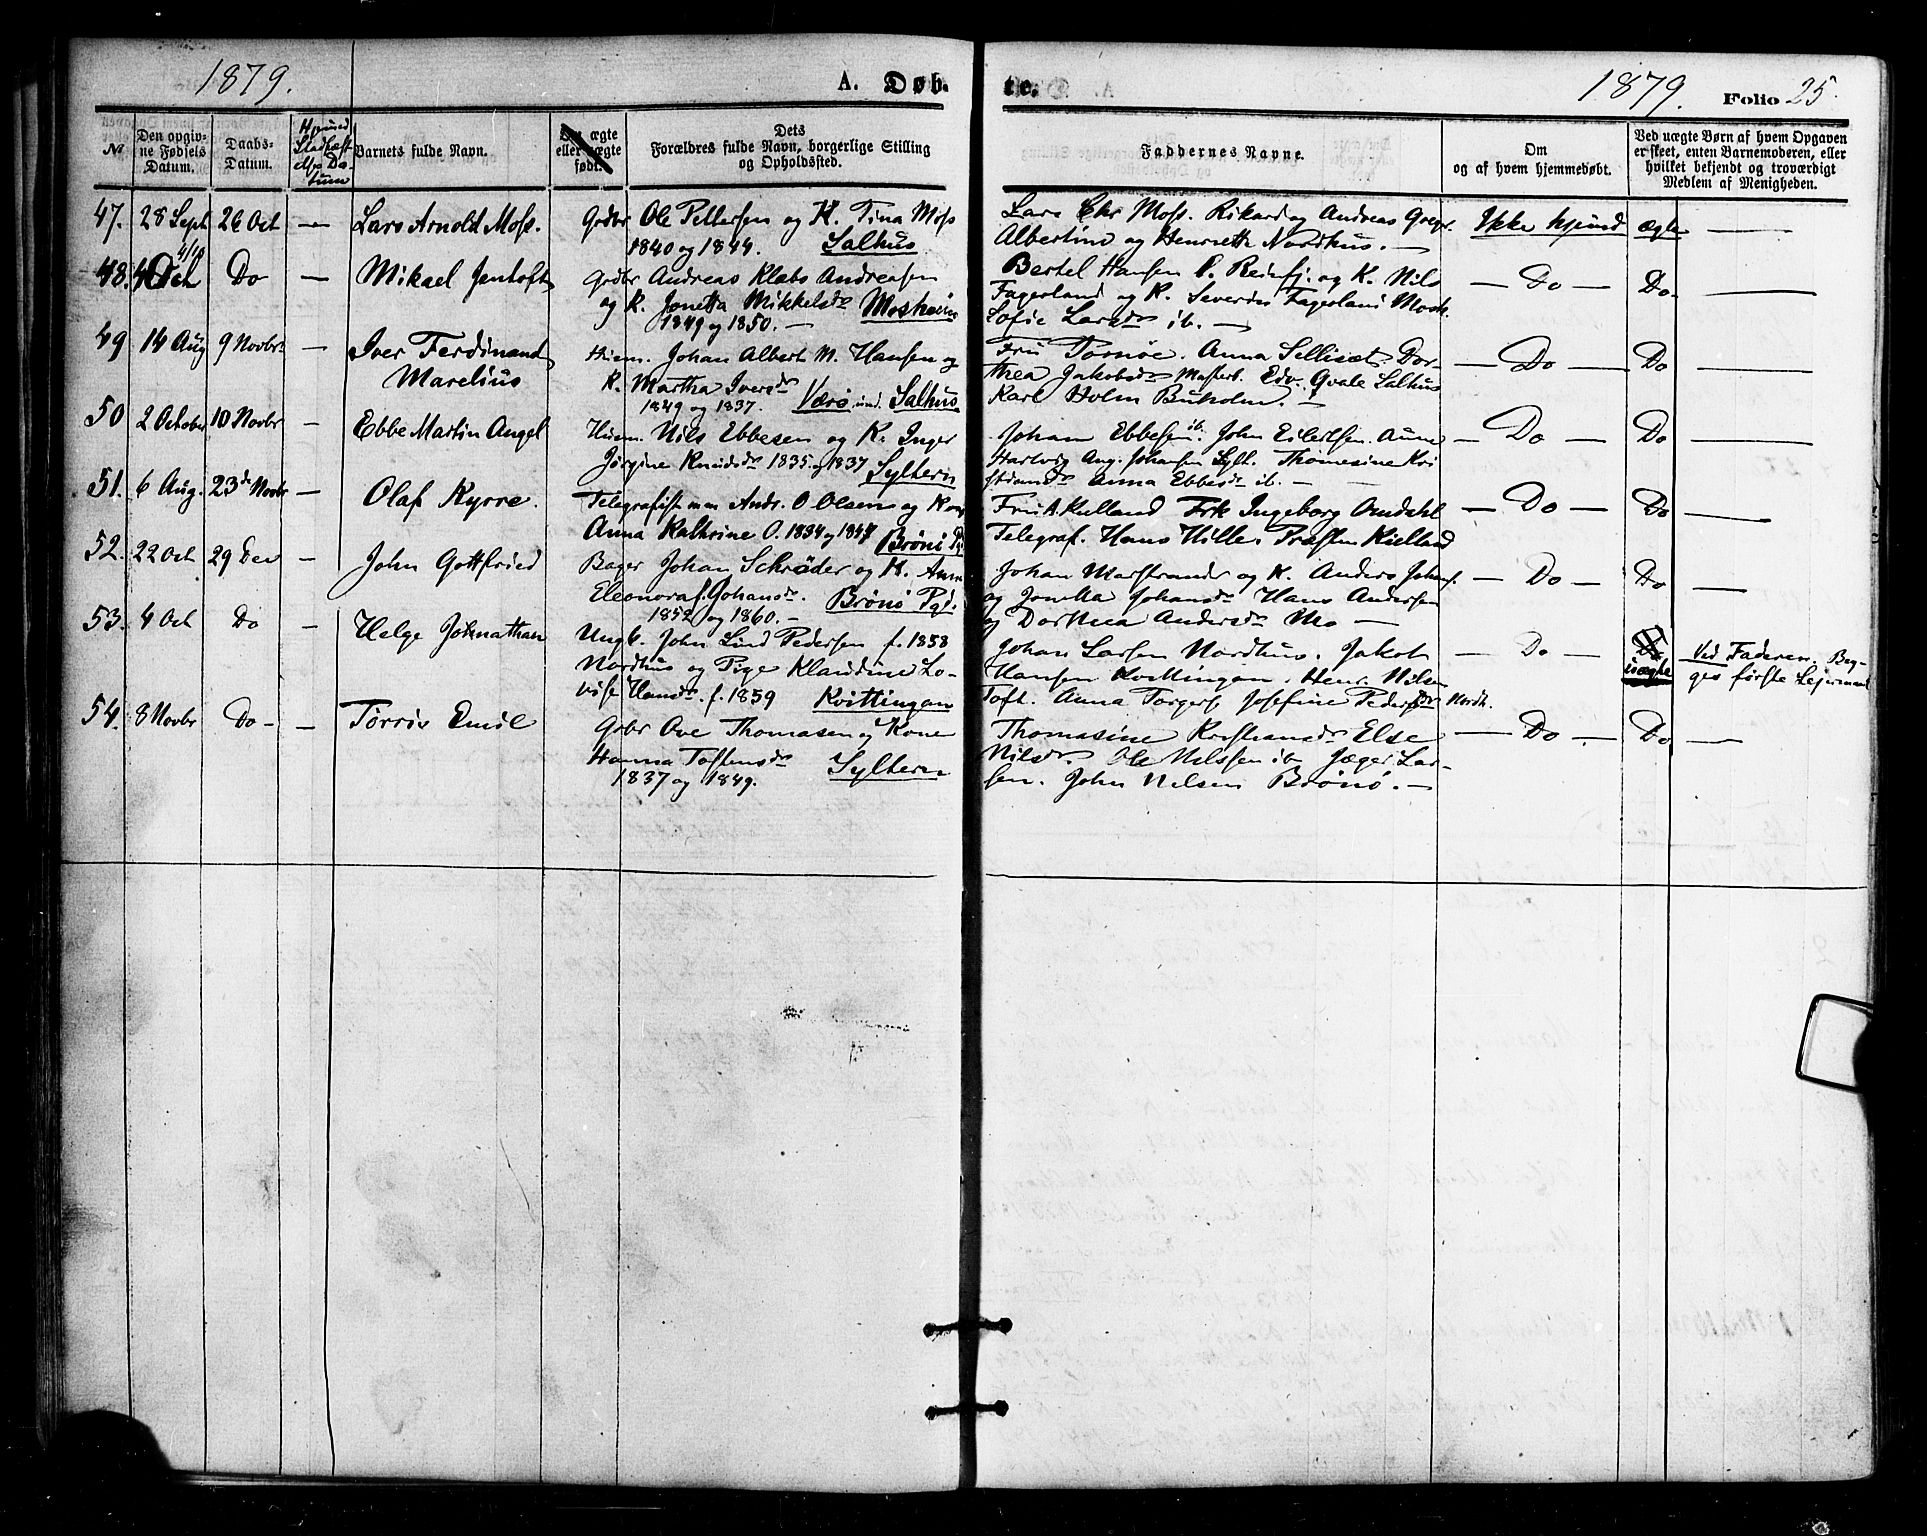 1879.
A. Døb-
te.
1879.
Folio 25.
№
Den opgivne Fødsels Datum.
Daabs-Datum.
Barnets fulde Navn.
ægte eller uægte født.
Dets Forældres fulde Navn, borgerlige Stilling og Opholdssted.
Faddernes Navne.
Om og af hvem hjemmedøbt.
Ved uægte Børn af hvem Opgaven er skeet, enten Barnemoderen, eller hvilket bekjendt og troværdigt Medlem af Menigheden.
47. 28 Sept 26 Oct — Lars Arnold Moss. Grdbr Ole Pettersen og K. Tina Moss
1840 og 1844. Salhus
Lars Chr Moss. Rikard og Andreas
Albertine og Henrette Nordhus. —
Ikke hjemd ægte —
48. 4 Oct 4/10 Do — Mikael Jentoft Grdbr Andreas Klabo Andreasen
og K. Jonetta Mikkelsdr
1849 og 1850. —
Bertel Hansen og K. Nils
Fagerland og K. Fagerland Mosh.
Sofie Larsdr ib. —
— Do — Do —
49 14 Aug 9 Novbr — Iver Ferdinand
Marelius
Husm. Johan Albert M. Hansen og
K. Martha Iversdr
1849 og 1837. Salhus
Fru Tornøe. Anna Dor-
thea Jakobsdr Edv. Qvale Salhus
Karl Holm Buholm. —
— Do — Do —
50 2 October 10 Novbr — Ebbe Martin Angel Husm. Nils Ebbesen og K. Inger
Jørgine Knudsdr 1835 og 1837 Syltern
Johan Ebbesen ib. John Eilertsen.
Hartvig Aug. Johansen Sylt. Thomesine Kri
stiansdr Anna Ebbesdr ib. —
— Do — Do —
51. 6 Aug. 23de Novbr — Olaf Kyrre. Telegrafist Andr. O Olsen og Kone
Anna Kathrine O. 1834 og Brønø
Fru A. Kielland Frk Ingeborg Omdahl
Telegraf. Hans Hille. Præsten Kielland
— Do — Do —
52. 22 Oct 29 Dec — John Gottfried Bager Johan Schrøder og K. Anne
Eleonora Johansdr. Brønø Pgd.
1852 og 1860. —
Johan Marstrander og K. Anders
og Jonetta Johansdr Hans Andersen
og Dorthea Andersdr Mo —
— Do — Do —
53. 4 Oct Do — Helge Johnathan Ungk. John Lind Pedersen f. 1858
Nordhus og Pige Klaudine Lo-
vise Hansdr. f. 1859 Kvittingen
Johan Larsen Nordhus. Jakob
Hansen Kvittingen. Henr. Nilsen
Toft. Anna Josefine Nordh.
— Do — Do
uægte
Ved Faderen. Beg-
ges første Leiermaal
54. 8 Novbr Do — — Tørris Emil Grbr Ove Thomasen og Kone
Hanna Toftensdr
1837 og 1849. Syltern
Thomasine Kristiansdr Else
Nilsdr. Ole Nilssen ib Jæger Lar-
sen. John Nelsen Brønø. —
— Do — Do —